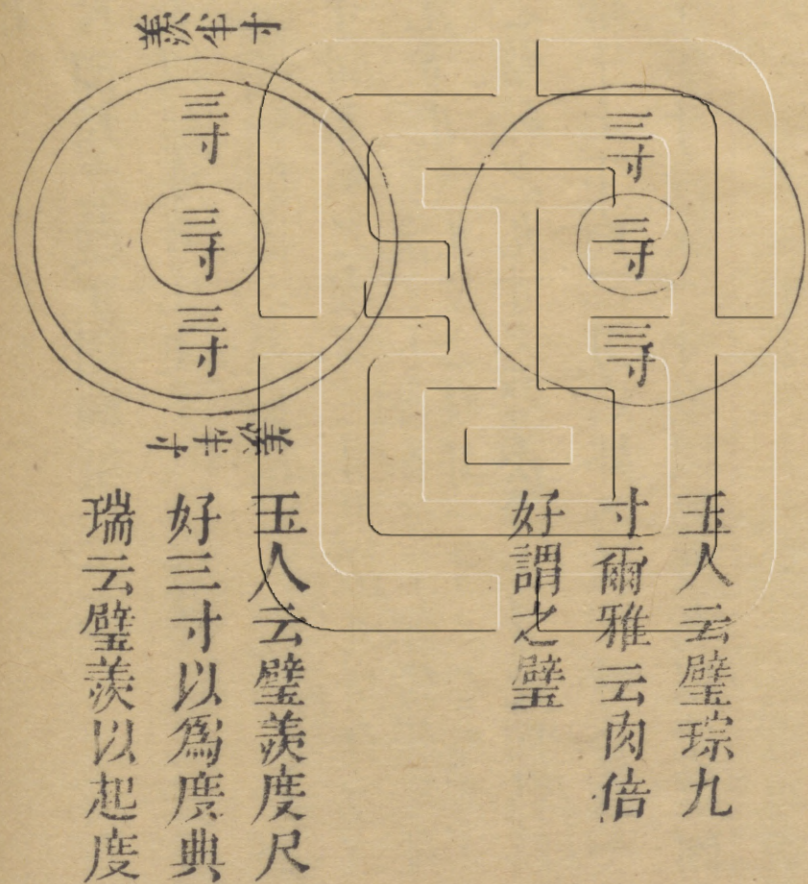 三寸
三寸
三寸
玉人云璧琮九
寸爾雅云肉倍
好謂之璧
羨半寸
三寸
三寸
三寸
羨半寸
玉人云璧羨度尺
好三寸以爲度典
瑞云璧羨以起度